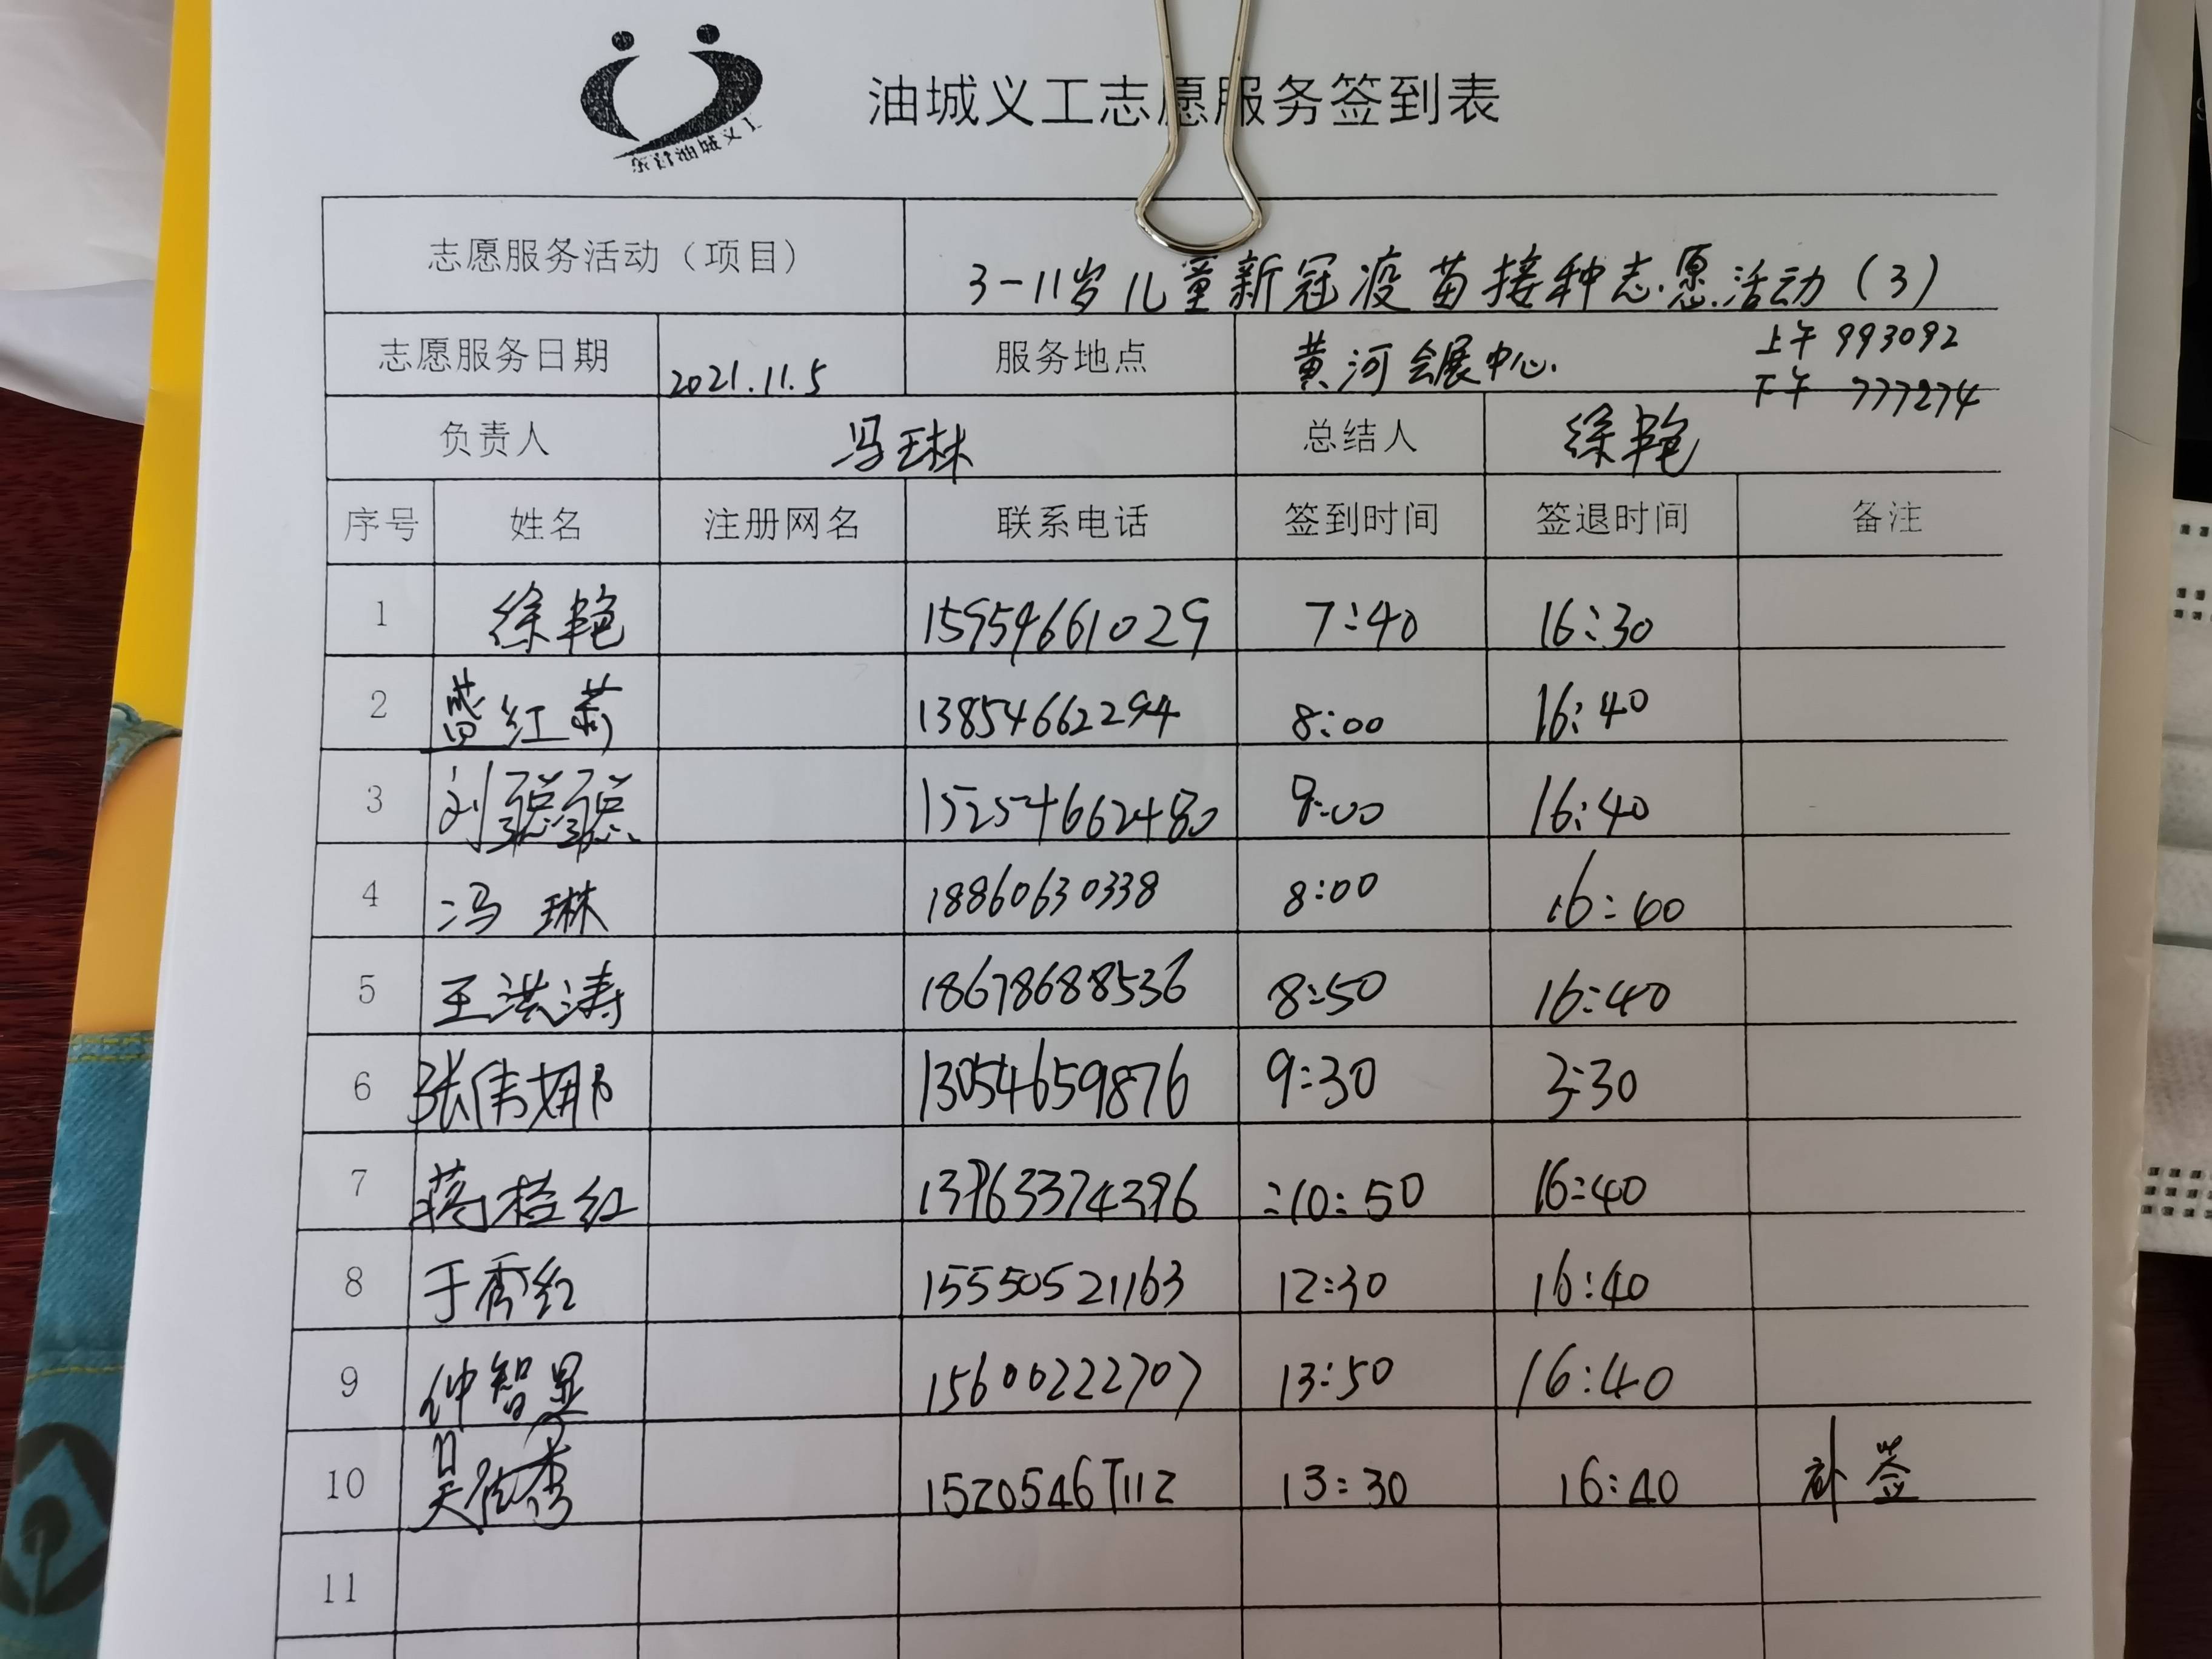 东营油城义工
油城义工志愿服务签到表
志愿服务活动（项目） 3-11岁儿童新冠疫苗接种志愿活动（3）
志愿服务日期 2021.11.5 服务地点 黄河会展中心. 上午 993092
下午 777274
负责人 冯琳 总结人 徐艳
序号 姓名 注册网名 联系电话 签到时间 签退时间 备注
1 徐艳 15954661029 7:40 16:30
2 曹红莉 13854662294 8:00 16:40
3 刘聪聪 15254662480 8:00 16:40
4 冯琳 18860630338 8:00 16:40
5 王洪涛 18678688536 8:50 16:40
6 张伟娜 13054659876 9:30 3:30
7 蒋桂红 :10:50 16:40
8 于秀红 15550521163 12:30 16:40
9 仲智显 15600222707 13:50 16:40
10 13:30 16:40 补签
11